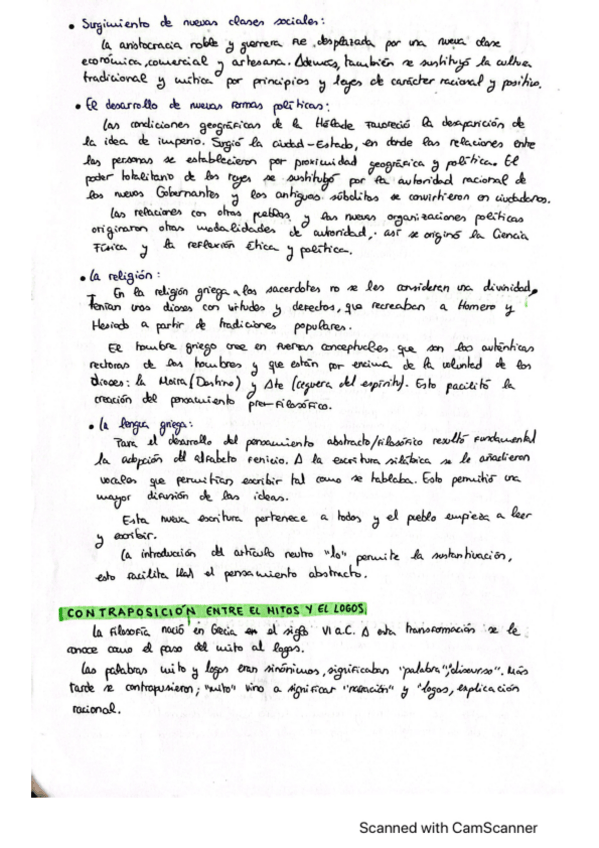 • Surgimiento de nuevas clases sociales:
La aristocracia noble y guerrera fue desplazada por una nueva clase
económica, comercial y artesana. Además, también se sustituyó la cultura
tradicional y mítica por principios y leyes de carácter racional y positivo.
• El desarrollo de nuevas formas políticas:
Las condiciones geográficas de la Hélade favoreció la desaparición de
la idea de imperio. Surgió la ciudad-Estado, en donde las relaciones entre
las personas se establecieron por proximidad geográfica y política. El
poder totalitario de los reyes se sustituyó por la autoridad racional de
los nuevos Gobernantes y los antiguos súbditos se convirtieron en ciudadanos.
Las relaciones con otros pueblos y las nuevas organizaciones políticas
originaron otras modalidades de autoridad, así se originó la Ciencia
Física y la reflexión Ética y política.
• La religión:
En la religión griega a los sacerdotes no se les consideran una divinidad.
Tenían unos dioses con virtudes y defectos, que recreaban a Homero y
Hesiodo a partir de tradiciones populares.
El hombre griego cree en fuerzas conceptuales que son las auténticas
rectoras de los hombres y que están por encima de la voluntad de los
dioses: la Moira (Destino) y Ate (ceguera del espíritu). Esto facilitó la
creación del pensamiento pre-filosófico.
• La lengua griega:
Para el desarrollo del pensamiento abstracto/filosófico resultó fundamental
la adopción del alfabeto fenicio. A la escritura silábica se le añadieron
vocales que permitían escribir tal como se hablaba. Esto permitió una
mayor difusión de las ideas.
Esta nueva escritura pertenece a todos y el pueblo empieza a leer
y escribir.
La introducción del artículo neutro "lo" permite la sustantivación,
esto facilita el pensamiento abstracto.
CONTRAPOSICIÓN ENTRE EL MITOS Y EL LOGOS.
La Filosofía nació en Grecia en el siglo VI a.C. A esta transformación se le
conoce como el paso del mito al logos.
Las palabras mito y logos eran sinónimos, significaban "palabra", "discurso". Más
tarde se contrapusieron; "mito" vino a significar "narración" y "logos, explicación
racional.
Scanned with CamScanner